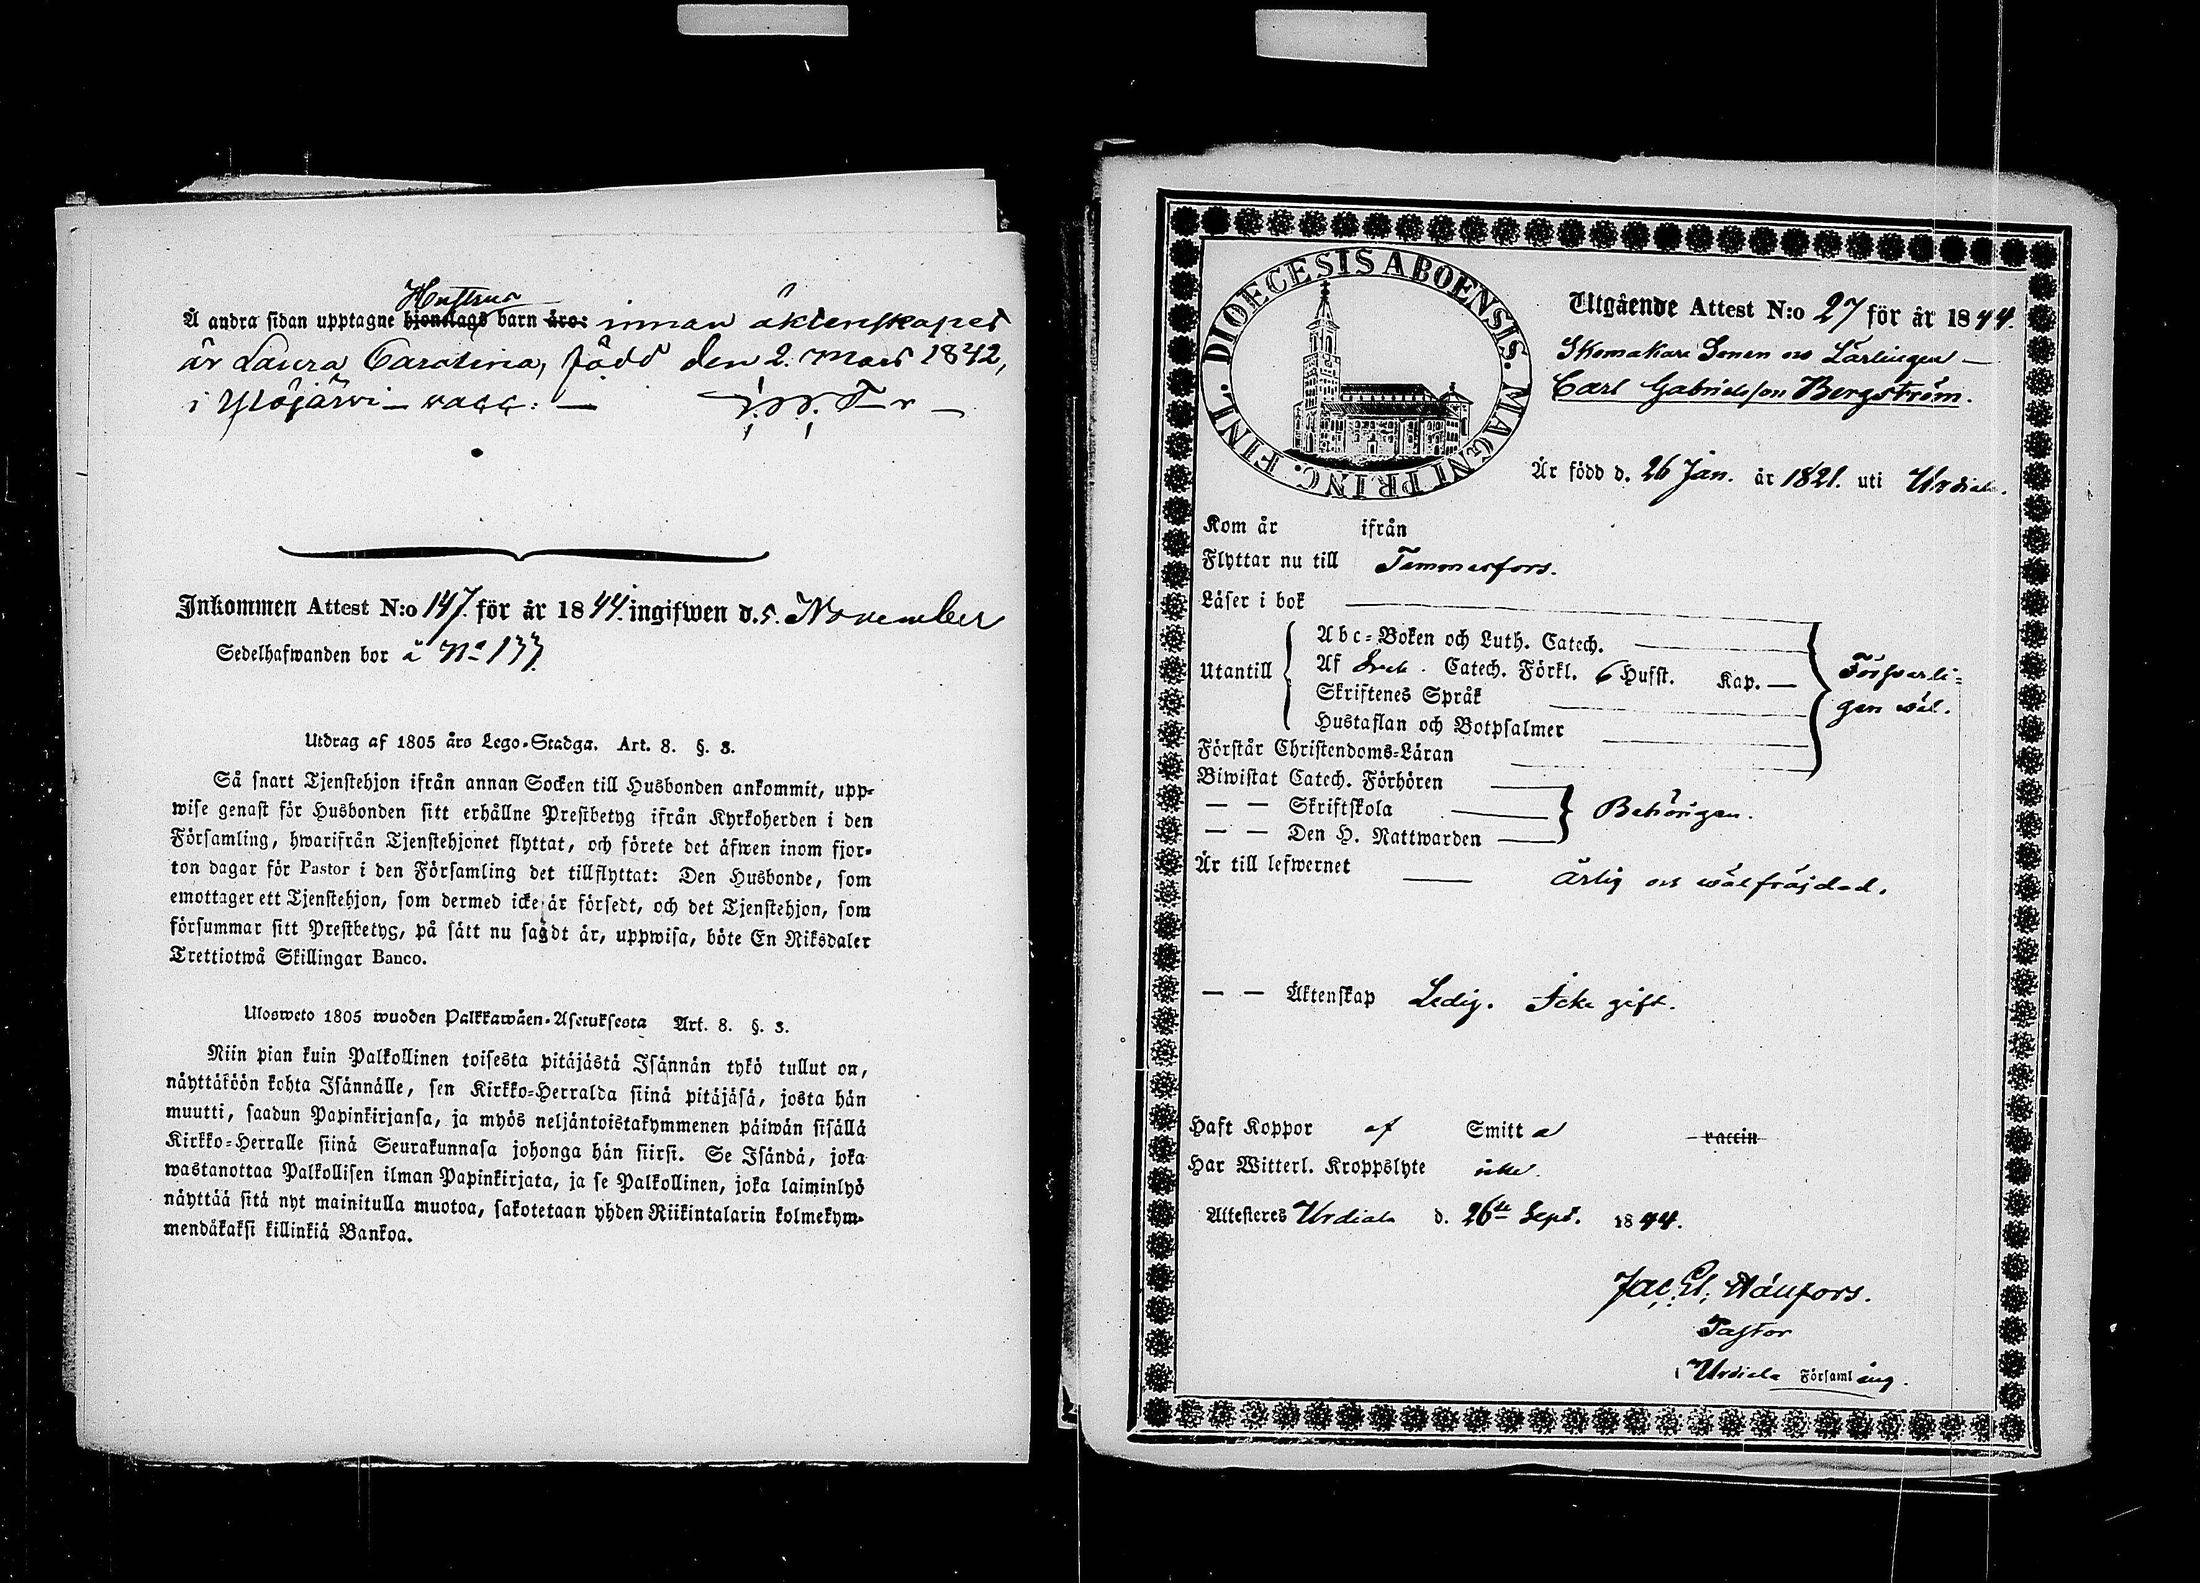 Hustrus
Å andra sidan upptagne hjonelags barn äro: innan äktenskapet
är Laura Carolina, född den 2. Mars 1842,
i Ylöjärvi – vacc: –
Inkommen Attest N:o 147. för år 1844. ingifwen d. 5. November
Sedelhafwanden bor å No 133.
Utdrag af 1805 års Lego-Stadga. Art. 8. §. 3.
Så snart Tjenstehjon ifrån annan Socken till Husbonden ankommit, upp-
wise genast för Husbonden sitt erhållne Prestbetyg ifrån Kyrkoherden i den
Församling, hwarifrån Tjenstehjonet flyttat, och förete det äfwen inom fjor-
ton dagar för Pastor i den Församling det tillflyttat: Den Husbonde, som
emottager ett Tjenstehjon, som dermed icke är försedt, och det Tjenstehjon, som
försummar sitt Prestbetyg, på sätt nu sagdt är, uppwisa, böte En Riksdaler
Trettiotwå Skillingar Banco.
Ulosweto 1805 wuoden Palkkawäen-Asetuksesta Art. 8. §. 3.
Niin pian kuin Palkollinen toisesta pitäjästä Isännän tykö tullut on,
näyttäköön kohta Isännälle, sen Kirkko-Herralda siinä pitäjäsä, josta hän
muutti, saadun Papinkirjansa, ja myös neljäntoistakymmenen päiwän sisällä
Kirkko-Herralle siinä Seurakunnasa johonga hän siirsi. Se Isändä, joka
wastanottaa Palkollisen ilman Papinkirjata, ja se Palkollinen, joka laiminlyö
näyttää sitä nyt mainitulla muotoa, sakotetaan yhden Riikintalarin kolmekym-
mendäkaksi killinkiä Bankoa.
DIOECESIS ABOENSIS. MAGNI PRINC. FINL.
Utgående Attest N:o 27 för år 1844.
Skomakare Sonen och Lärlingen –
Carl Gabrielsson Bergström.
Är född d. 26 Jan. år 1821. uti Urdiala.
Kom år ifrån
Flyttar nu till Tammerfors.
Läser i bok
Utantill
Abc-Boken och Luth. Catech.
Af Sveb. Catech. Förkl. 6 Hufst. Kap. —
Skriftenes Språk
Hustaflan och Botpsalmer
Förstår Christendoms-Läran
Försvarli-
gen väl.
Biwistat Catech. Förhören
— — Skriftskola
— — Den H. Nattwarden
Behörigen.
Är till lefwernet — ärlig och välfräjdad.
— — Äktenskap Ledig. Icke gift.
Haft Koppor af Smitta vaccin
Har Witterl. Kroppslyte icke.
Attesteres Urdiala d. 26te Sept. 1844.
Jac. El.
Pastor
i Urdiala Församling.